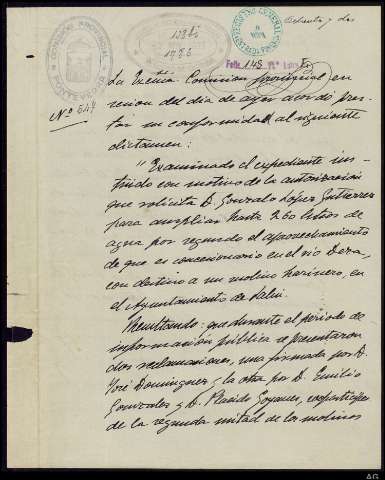 Ochenta y dos
COMISIÓN PROVINCIAL
PONTEVEDRA
Nº 547
1986
Folio 148 Nº Libro
La Excma Comision provincial, en
sesion del dia de ayer acordó pres-
tar su conformidad al siguiente
dictamen:
"Examinado el expediente ins-
truido con motivo de la autorización
que solicita D. Gonzalo López Gutierrez
para ampliar hasta 260 litros de
agua por segundo el aprovechamiento
de que es concesionario en el rio Deza,
con destino a un molino harinero, en
el Ayuntamiento de Lalin.
Resultando: que durante el periodo de
información pública se presentaron
dos reclamaciones, una formada por D.
José Dominguez y la otra por D. Emilio
Gonzalez y D. Placido Goyanes, copartícipes
de la segunda mitad de los molinos